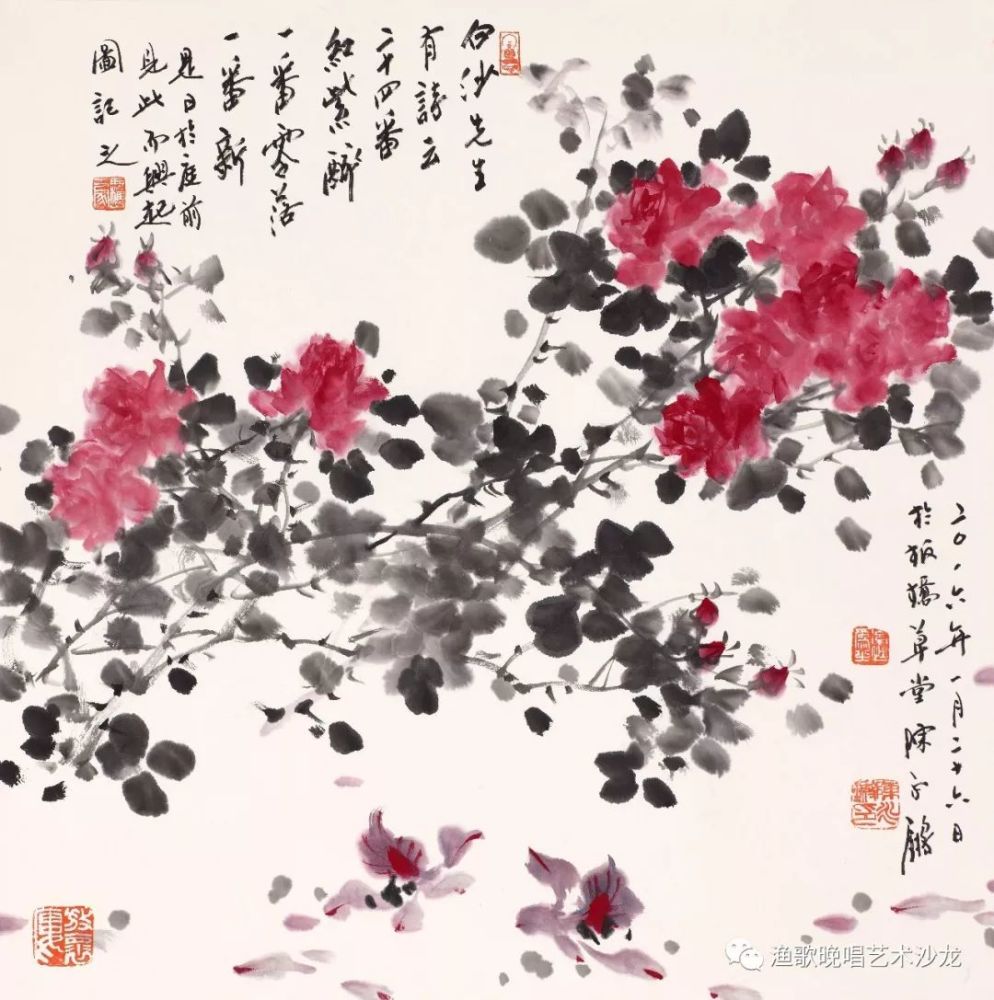 白沙先生
有詩云
二十四番
紅紫
一番零落
一番新
是日於庭前
見此而興起
圖記之
二〇一六年一月二十六日
於草堂陳永鏘
渔歌晚唱艺术沙龙